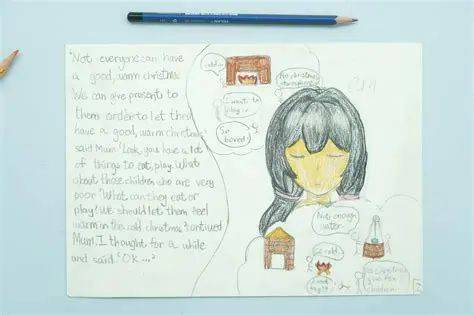 "Not everyone can have
a good, warm christmas
We can give presents to
them in order to let them
have a good, warm christmas,'
said Mum. 'Look, you have a lot
of things to eat, play. What
about those children who are very
poor? What can they eat or
play? We should let them feel
warm in the cold christmas.' continued
Mum. I thought for a while
and said. 'Ok...."
cold...
No christmas
I want to
play...
So
bored!
Not enough
water
So cold...
No Christmas
children